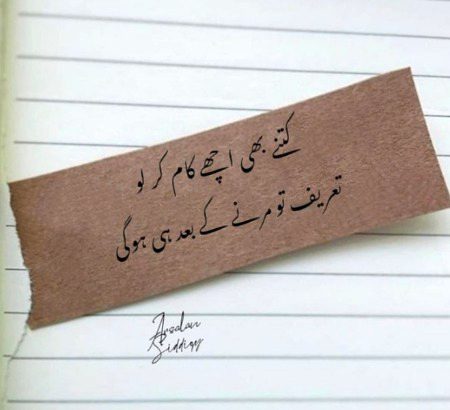 کتنے بھی اچھے کام کر لو
تعریف تو مرنے کے بعد ہی ہوگی
Arsalan
Siddiqy